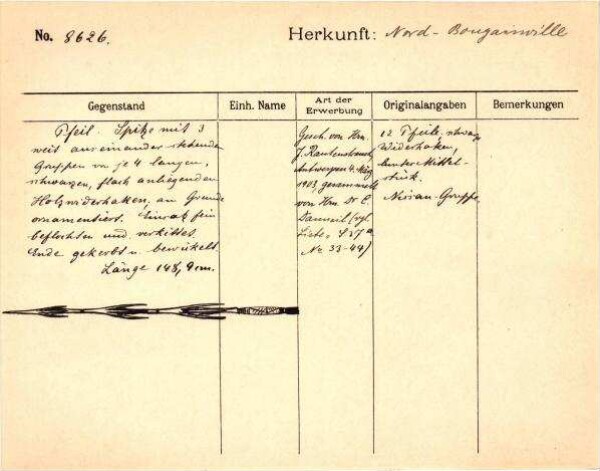 No. 8626.
Herkunft: Nord-Bougainville
Gegenstand
Einh. Name
Art der Erwerbung
Originalangaben
Bemerkungen
Pfeil. Spitze mit 3
weit auseinander stehenden
Gruppen von je 4 langen,
schwarzen, flach anliegenden
Holzwiderhaken, am Grunde
ornamentiert. Einsatz fein
beflochten und verkittet.
Ende gekerbt u. bewickelt.
Länge 148,9 cm.
Gesch. von Hrn.
J. Rautenstrauch,
Antwerpen 4. März
1903, gesammelt
von Hrn. Dr. E.
(vgl.
Liste S 37a
No 33-44)
12 Pfeile, schwarze
Widerhaken,
buntes Mittel-
stück.
Nissan-Gruppe.